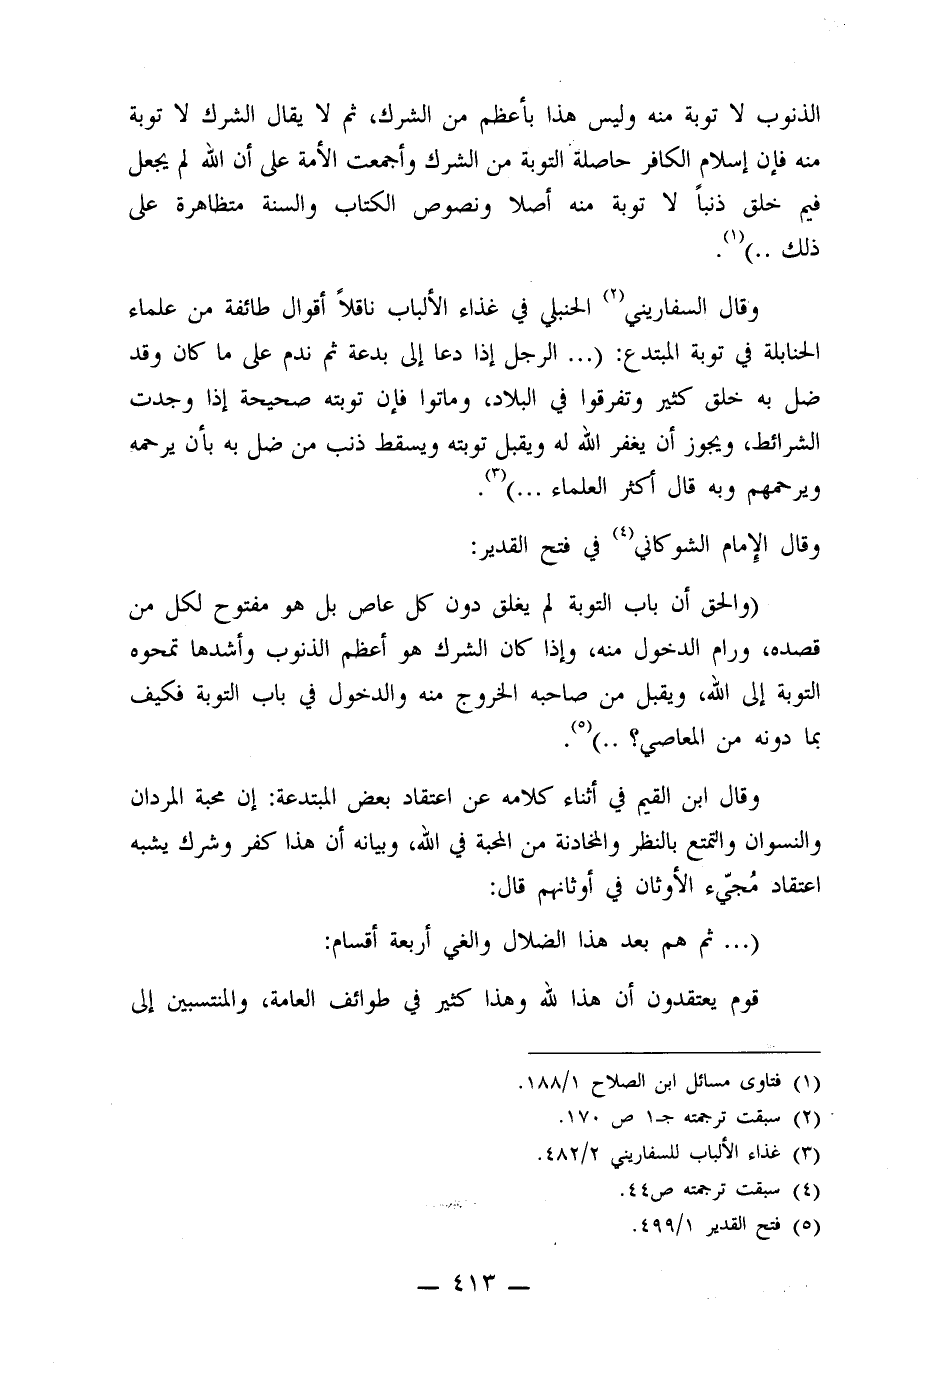 الذنوب لا توبة منه وليس هذا بأعظم من الشرك، ثم لا يقال الشرك لا توبة
منه فإن إسلام الكافر حاصلة التوبة من الشرك وأجمعت الأمة على أن الله لم يجعل
فيم خلق ذنباً لا توبة منه أصلا ونصوص الكتاب والسنة متظاهرة على
ذلك ..)(١).
وقال السفاريني(٢) الحنبلي في غذاء الألباب ناقلاً أقوال طائفة من علماء
الحنابلة في توبة المبتدع: (... الرجل إذا دعا إلى بدعة ثم ندم على ما كان وقد
ضل به خلق كثير وتفرقوا في البلاد، وماتوا فإن توبته صحيحة إذا وجدت
الشرائط، ويجوز أن يغفر الله له ويقبل توبته ويسقط ذنب من ضل به بأن يرحمه
ويرحمهم وبه قال أكثر العلماء ...)(٣).
وقال الإمام الشوكاني(٤) في فتح القدير:
(والحق أن باب التوبة لم يغلق دون كل عاص بل هو مفتوح لكل من
قصده، ورام الدخول منه، وإذا كان الشرك هو أعظم الذنوب وأشدها تمحوه
التوبة إلى الله، ويقبل من صاحبه الخروج منه والدخول في باب التوبة فكيف
بما دونه من المعاصي؟ ..)(٥).
وقال ابن القيم في أثناء كلامه عن اعتقاد بعض المبتدعة: إن محبة المردان
والنسوان والتمتع بالنظر والمخادنة من المحبة في الله، وبيانه أن هذا كفر وشرك يشبه
اعتقاد مُجيّء الأوثان في أوثانهم قال:
(... ثم هم بعد هذا الضلال والغي أربعة أقسام:
قوم يعتقدون أن هذا لله وهذا كثير في طوائف العامة، والمنتسبين إلى
(١) فتاوى مسائل ابن الصلاح ١/ ١٨٨.
(٢) سبقت ترجمته جـ١ ص ١٧٠.
(٣) غذاء الألباب للسفاريني ٢/ ٤٨٢.
(٤) سبقت ترجمته ص٤٤.
(٥) فتح القدير ١/ ٤٩٩.
— ٤١٣ —